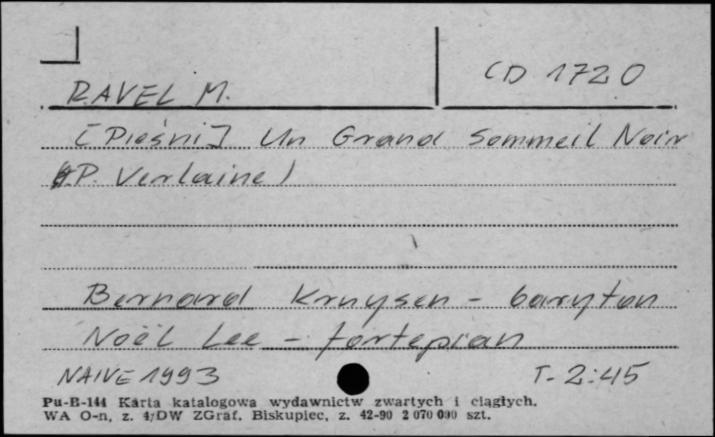 CD 1720
RAVEL M.
[Pieśni] Un Grand Sommeil Noir
(P. Verlaine)
Bernard Kruysen - baryton
Noël Lee - fortepian
NAIVE 1993 T- 2:45
Pu-B-144 Karta katalogowa wydawnictw zwartych i ciągłych.
WA O-n, z. 4/DW ZGraf. Biskupiec, z. 42-90 2 070 000 szt.